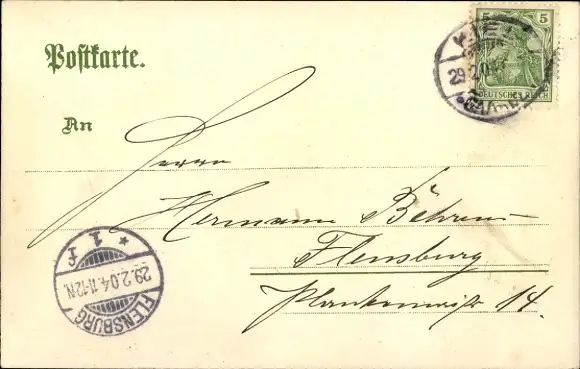 Postkarte.
5 5
DEUTSCHES REICH
29.2.04
An
Herrn
Hermann Behrens
Flensburg
14.
* 1 f
29.2.04.11-12N.
FLENSBURG